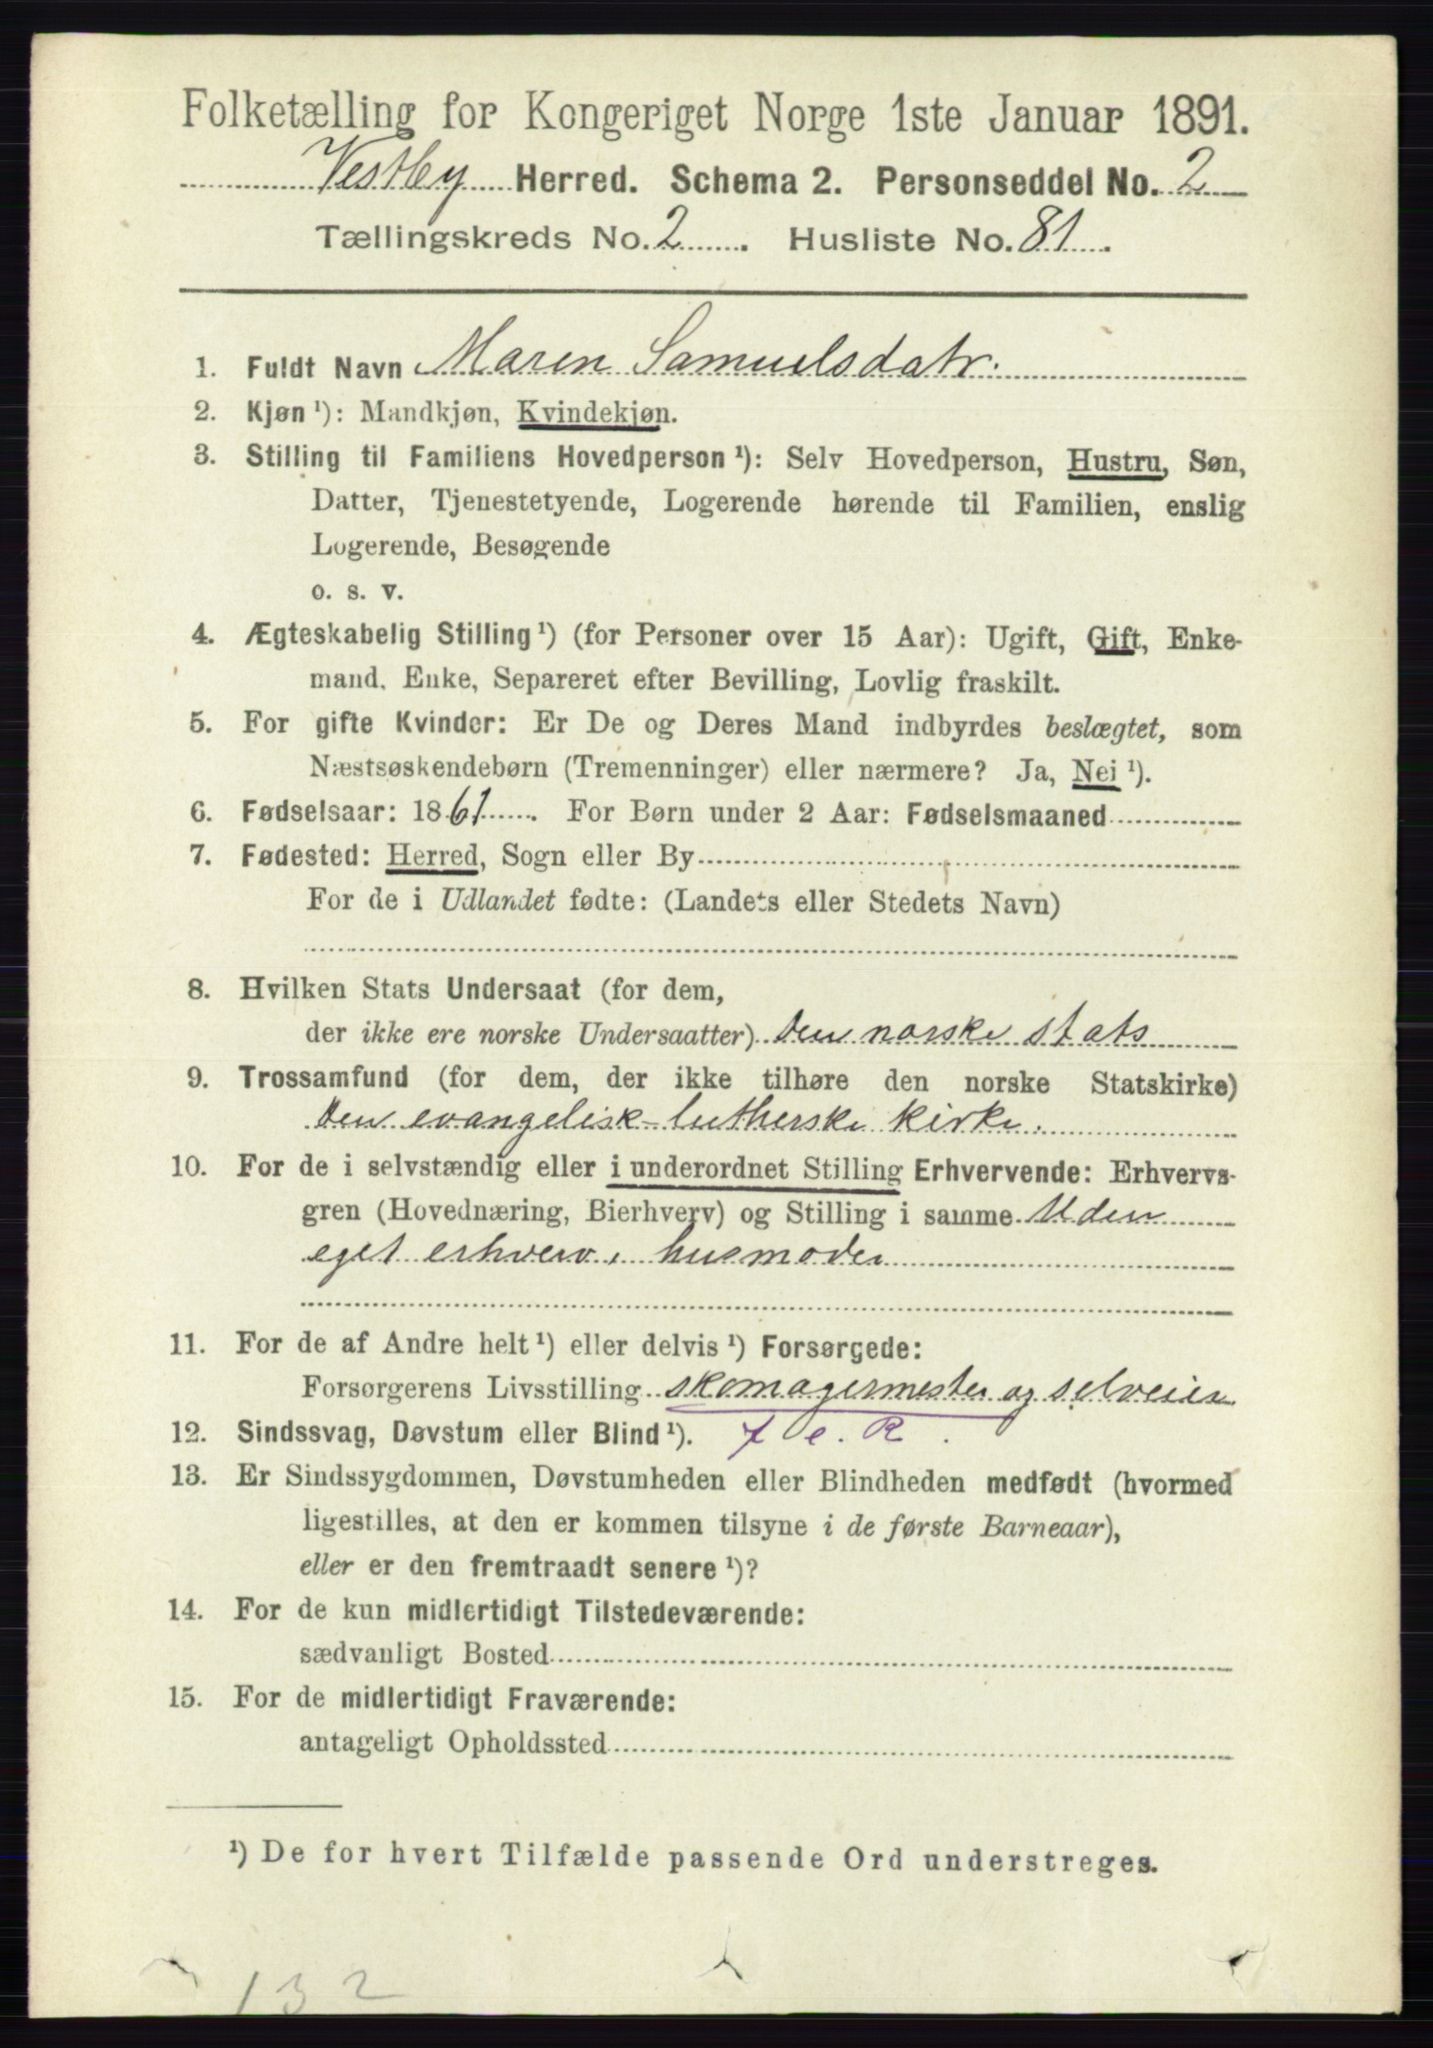 Folketælling for Kongeriget Norge 1ste Januar 1891.
Vestby Herred. Schema 2. Personseddel No. 2
Tællingskreds No. 2. Husliste No. 81.
1. Fuldt Navn Maren Samuelsdatr.
2. Kjøn ¹): Mandkjøn, Kvindekjøn.
3. Stilling til Familiens Hovedperson ¹): Selv Hovedperson, Hustru, Søn,
Datter, Tjenestetyende, Logerende hørende til Familien, enslig
Logerende, Besøgende
o. s. v.
4. Ægteskabelig Stilling ¹) (for Personer over 15 Aar): Ugift, Gift, Enke-
mand, Enke, Separeret efter Bevilling, Lovlig fraskilt.
5. For gifte Kvinder: Er De og Deres Mand indbyrdes beslægtet, som
Næstsøskendebørn (Tremenninger) eller nærmere? Ja, Nei ¹).
6. Fødselsaar: 1861. For Børn under 2 Aar: Fødselsmaaned
7. Fødested: Herred, Sogn eller By
For de i Udlandet fødte: (Landets eller Stedets Navn)
8. Hvilken Stats Undersaat (for dem,
der ikke ere norske Undersaatter) den norske stats
9. Trossamfund (for dem, der ikke tilhøre den norske Statskirke)
den evangelisk-lutherske kirke.
10. For de i selvstændig eller i underordnet Stilling Erhvervende: Erhvervs-
gren (Hovednæring, Bierhverv) og Stilling i samme Uden
eget erhverv, husmoder
11. For de af Andre helt ¹) eller delvis ¹) Forsørgede:
Forsørgerens Livsstilling skomagermester og selveier
12. Sindssvag, Døvstum eller Blind ¹).
13. Er Sindssygdommen, Døvstumheden eller Blindheden medfødt (hvormed
ligestilles, at den er kommen tilsyne i de første Barneaar),
eller er den fremtraadt senere ¹)?
14. For de kun midlertidigt Tilstedeværende:
sædvanligt Bosted
15. For de midlertidigt Fraværende:
antageligt Opholdssted
¹) De for hvert Tilfælde passende Ord understreges.
132